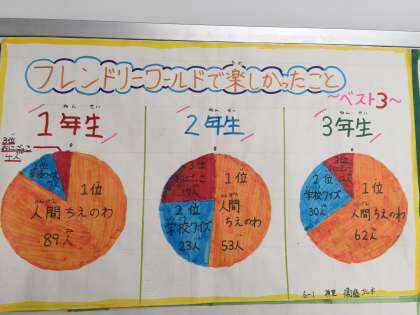 フレンドリーワールドで楽しかったこと
～ベスト3～
1年生
2年生
3年生
3位
4人
2位
1位
人間ちえのわ
89人
3位
17人
2位
学校クイズ
23人
1位
人間ちえのわ
53人
3位
2位
学校クイズ
30人
1位
人間ちえのわ
62人
6-1